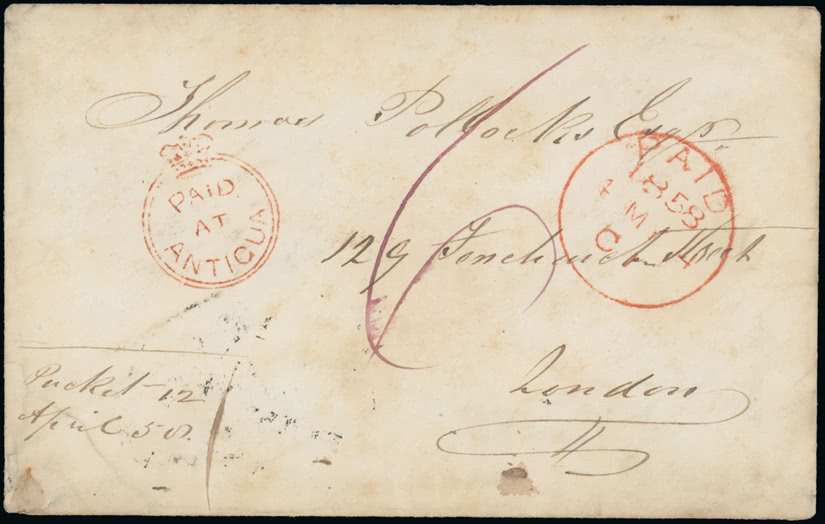 Thomas Pollocks Esqr
PAID
AT
ANTIGUA
PAID
1858
4 MY
129 Fenchurch Street
6
London
Packet 12
April 58.
1